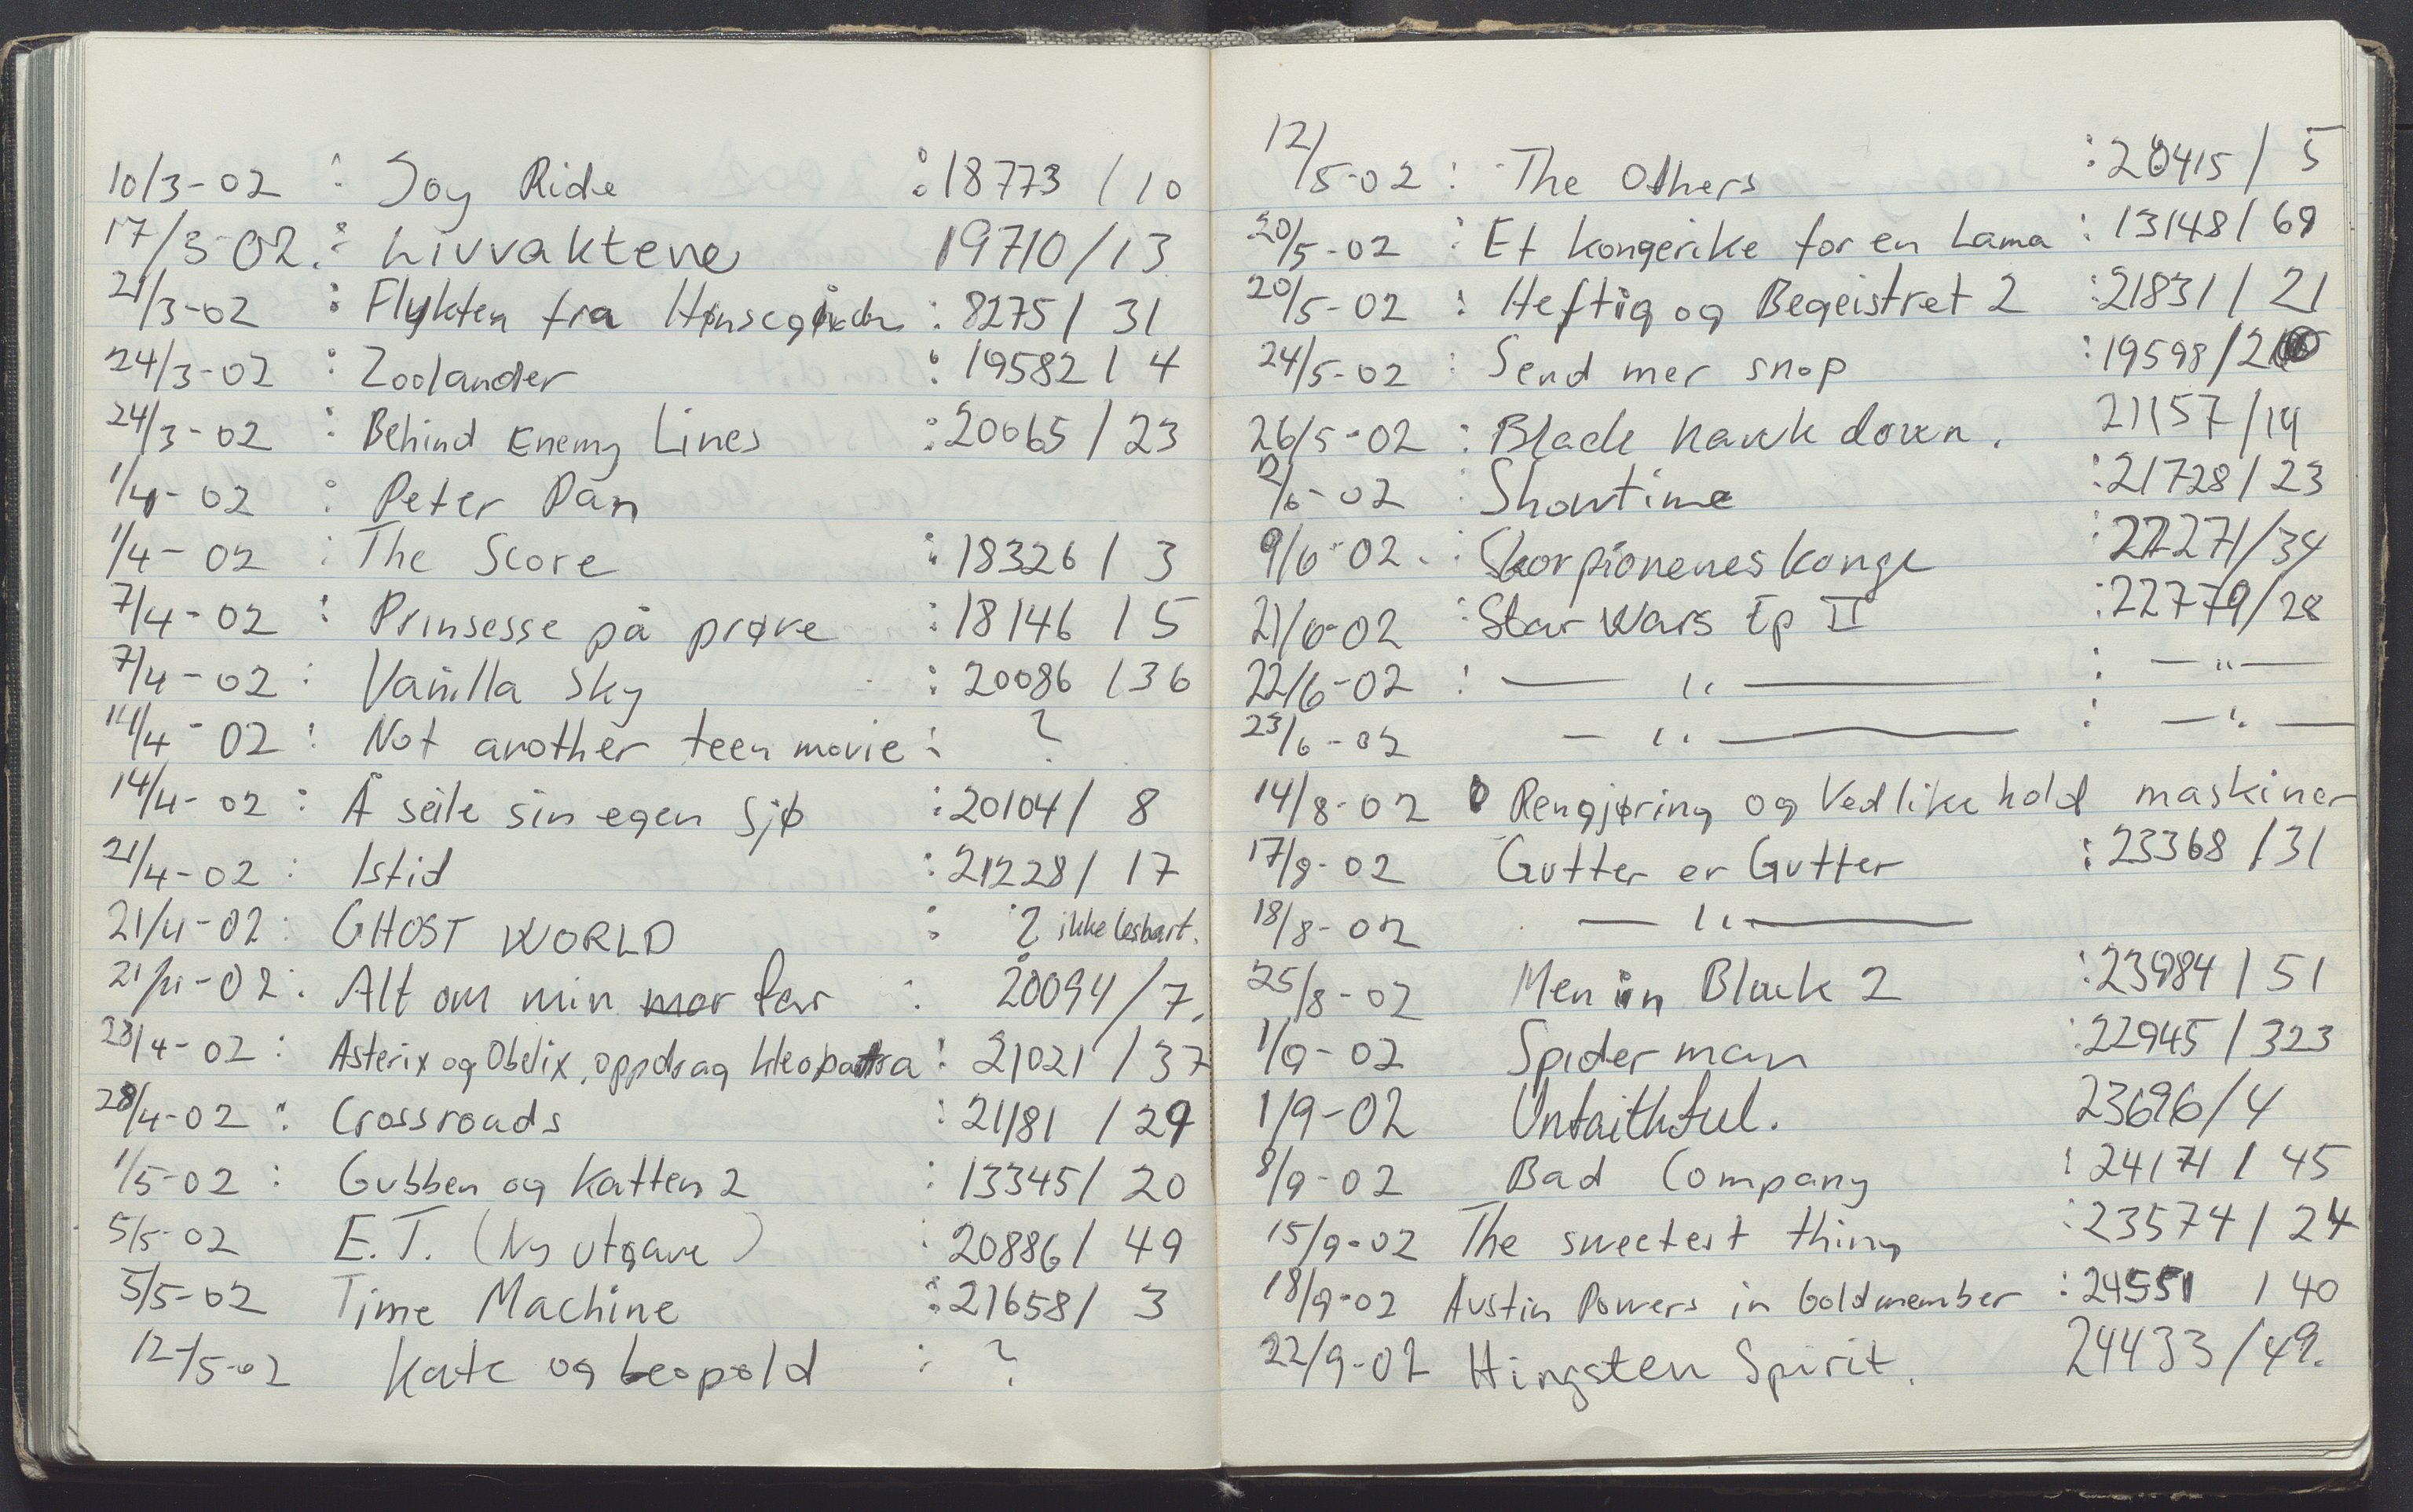 10/3-02 : Joy Ride : 18773 / 10
17/3-02 : Livvaktene 19710/13
21/3-02 : Flykten fra Hønsegården : 8275 / 31
24/3-02 : Zoolander : 19582 / 4
24/3-02 : Behind Enemy Lines : 20065 / 23
1/4-02 : Peter Pan
1/4-02 : The Score : 18326 / 3
7/4-02 : Prinsesse på prøve : 18146 / 5
7/4-02 : Vanilla Sky : 20086 / 36
14/4-02 : Not another teen movie : ?
14/4-02 : Å seile sin egen sjø : 20104 / 8
21/4-02 : Istid : 21228 / 17
21/4-02 : GHOST WORLD : ? ikke lesbart.
21/4-02 : Alt om min mor far : 20094/7.
28/4-02 : Asterix og Obelix, oppdrag kleopatra : 21021 / 37
28/4-02 : Crossroads : 21181 / 29
1/5-02 : Gubben og Katten 2 : 13345 / 20
5/5-02 E.T. (Ny utgave) : 20886 / 49
5/5-02 Time Machine : 21658 / 3
12/5-02 Kate og Leopold : ?
12/5-02 : The Others : 20415 / 5
20/5-02 : Et kongerike for en Lama : 13148 / 69
20/5-02 : Heftig og Begeistret 2 : 21831 / 21
24/5-02 : Send mer snop : 19598 / 2
26/5-02 : Black hawk down. 21157/14
2/6-02 : Showtime : 21728 / 23
9/6-02. : Skorpionenes Konge : 22271/34
21/6-02 : Star Wars Ep II : 22779/28
22/6-02 : — " — : — " —
23/6-02 — " — : — " —
14/8-02 Rengjøring og Vedlikehold maskiner
17/8-02 Gutter er Gutter : 23368 / 31
18/8-02 — " —
25/8-02 Men in Black 2 : 23984 / 51
1/9-02 Spider man : 22945 / 323
1/9-02 Unfaithful. 23696/4
8/9-02 Bad Company : 24171 / 45
15/9-02 The sweetest thing : 23574 / 24
18/9-02 Austin Powers in Goldmember : 24551 / 40
22/9-02 Hingsten Spirit. 24433/49.